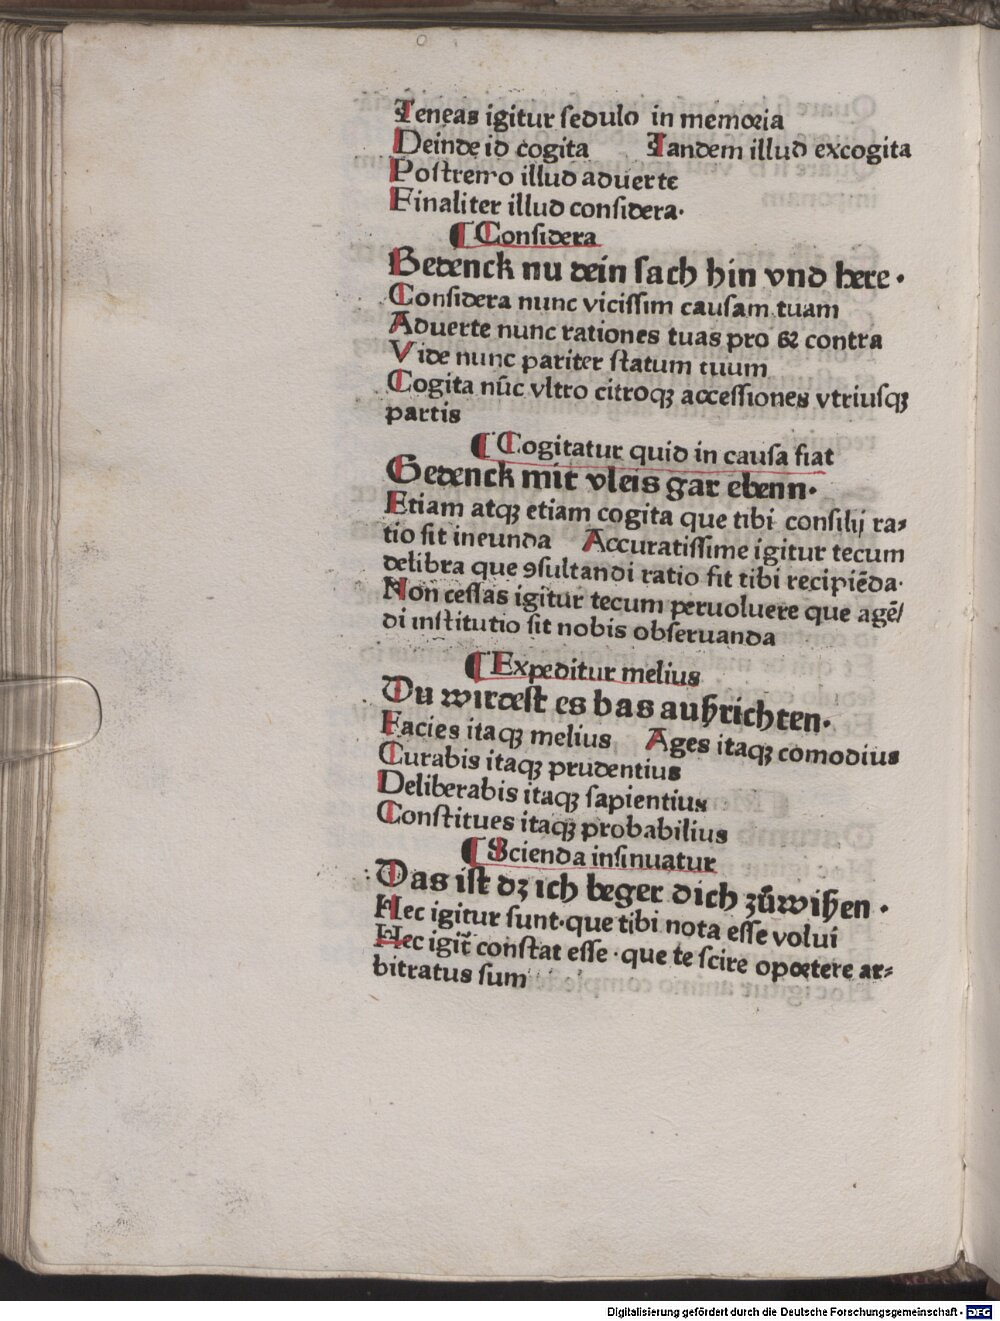 Teneas igitur sedulo in memoria
Deinde id cogita Tandem illud excogita
Postremo illud aduerte
Finaliter illud considera.
¶ Considera
Bedenck nu dein sach hin vnd here.
Considera nunc vicissim causam tuam
Aduerte nunc rationes tuas pro & contra
Vide nunc pariter statum tuum
Cogita nūc vltro citroqꝫ accessiones vtriusqꝫ
partis
¶ Cogitatur quid in causa fiat
Gedenck mit vleis gar ebenn.
Etiam atqꝫ etiam cogita que tibi consilij ra⸗
tio sit ineunda Accuratissime igitur tecum
delibra que ꝯsultandi ratio sit tibi recipiēda.
Non cessas igitur tecum peruoluere que agē/
di institutio sit nobis obseruanda
¶ Expeditur melius
Du wirdest es bas außrichten.
Facies itaqꝫ melius Ages itaqꝫ comodius
Curabis itaqꝫ prudentius
Deliberabis itaqꝫ sapientius
Constitues itaqꝫ probabilius
¶ Scienda insinuatur
Das ist dꝫ ich beger dich zū wißen.
Hec igitur sunt.que tibi nota esse volui
Hec igit̄ constat esse.que te scire oportere ar⸗
bitratus sum
Digitalisierung gefördert durch die Deutsche Forschungsgemeinschaft - DFG